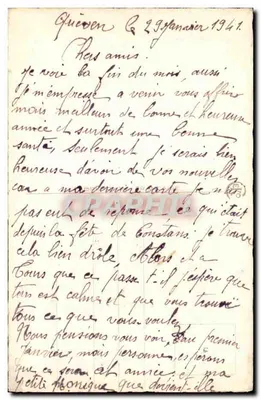 Quéven le 29 Janvier 1941.
Chers amis.
Je voie la fin du mois, aussi
je m'empresse a venir vous offrir
mais meilleurs de bonne et heureuse
année et surtout une bonne
santé, seulement je serais bien
heureuse d'avoir de vos nouvelles
car a ma dernière carte je n'ai
pas eut de reponse ce qui était
depuis la fêt de Constans je trouve
cela bien drôle Alors
Tous que ce passe t-il j'espère que
tous est calme et que vous
tous ce que vous voulez
Nous pensions vous voir, au premier
Janvier, mais personne, espérons
que ce sera cet année, et ma
petite Monique que devient-elle